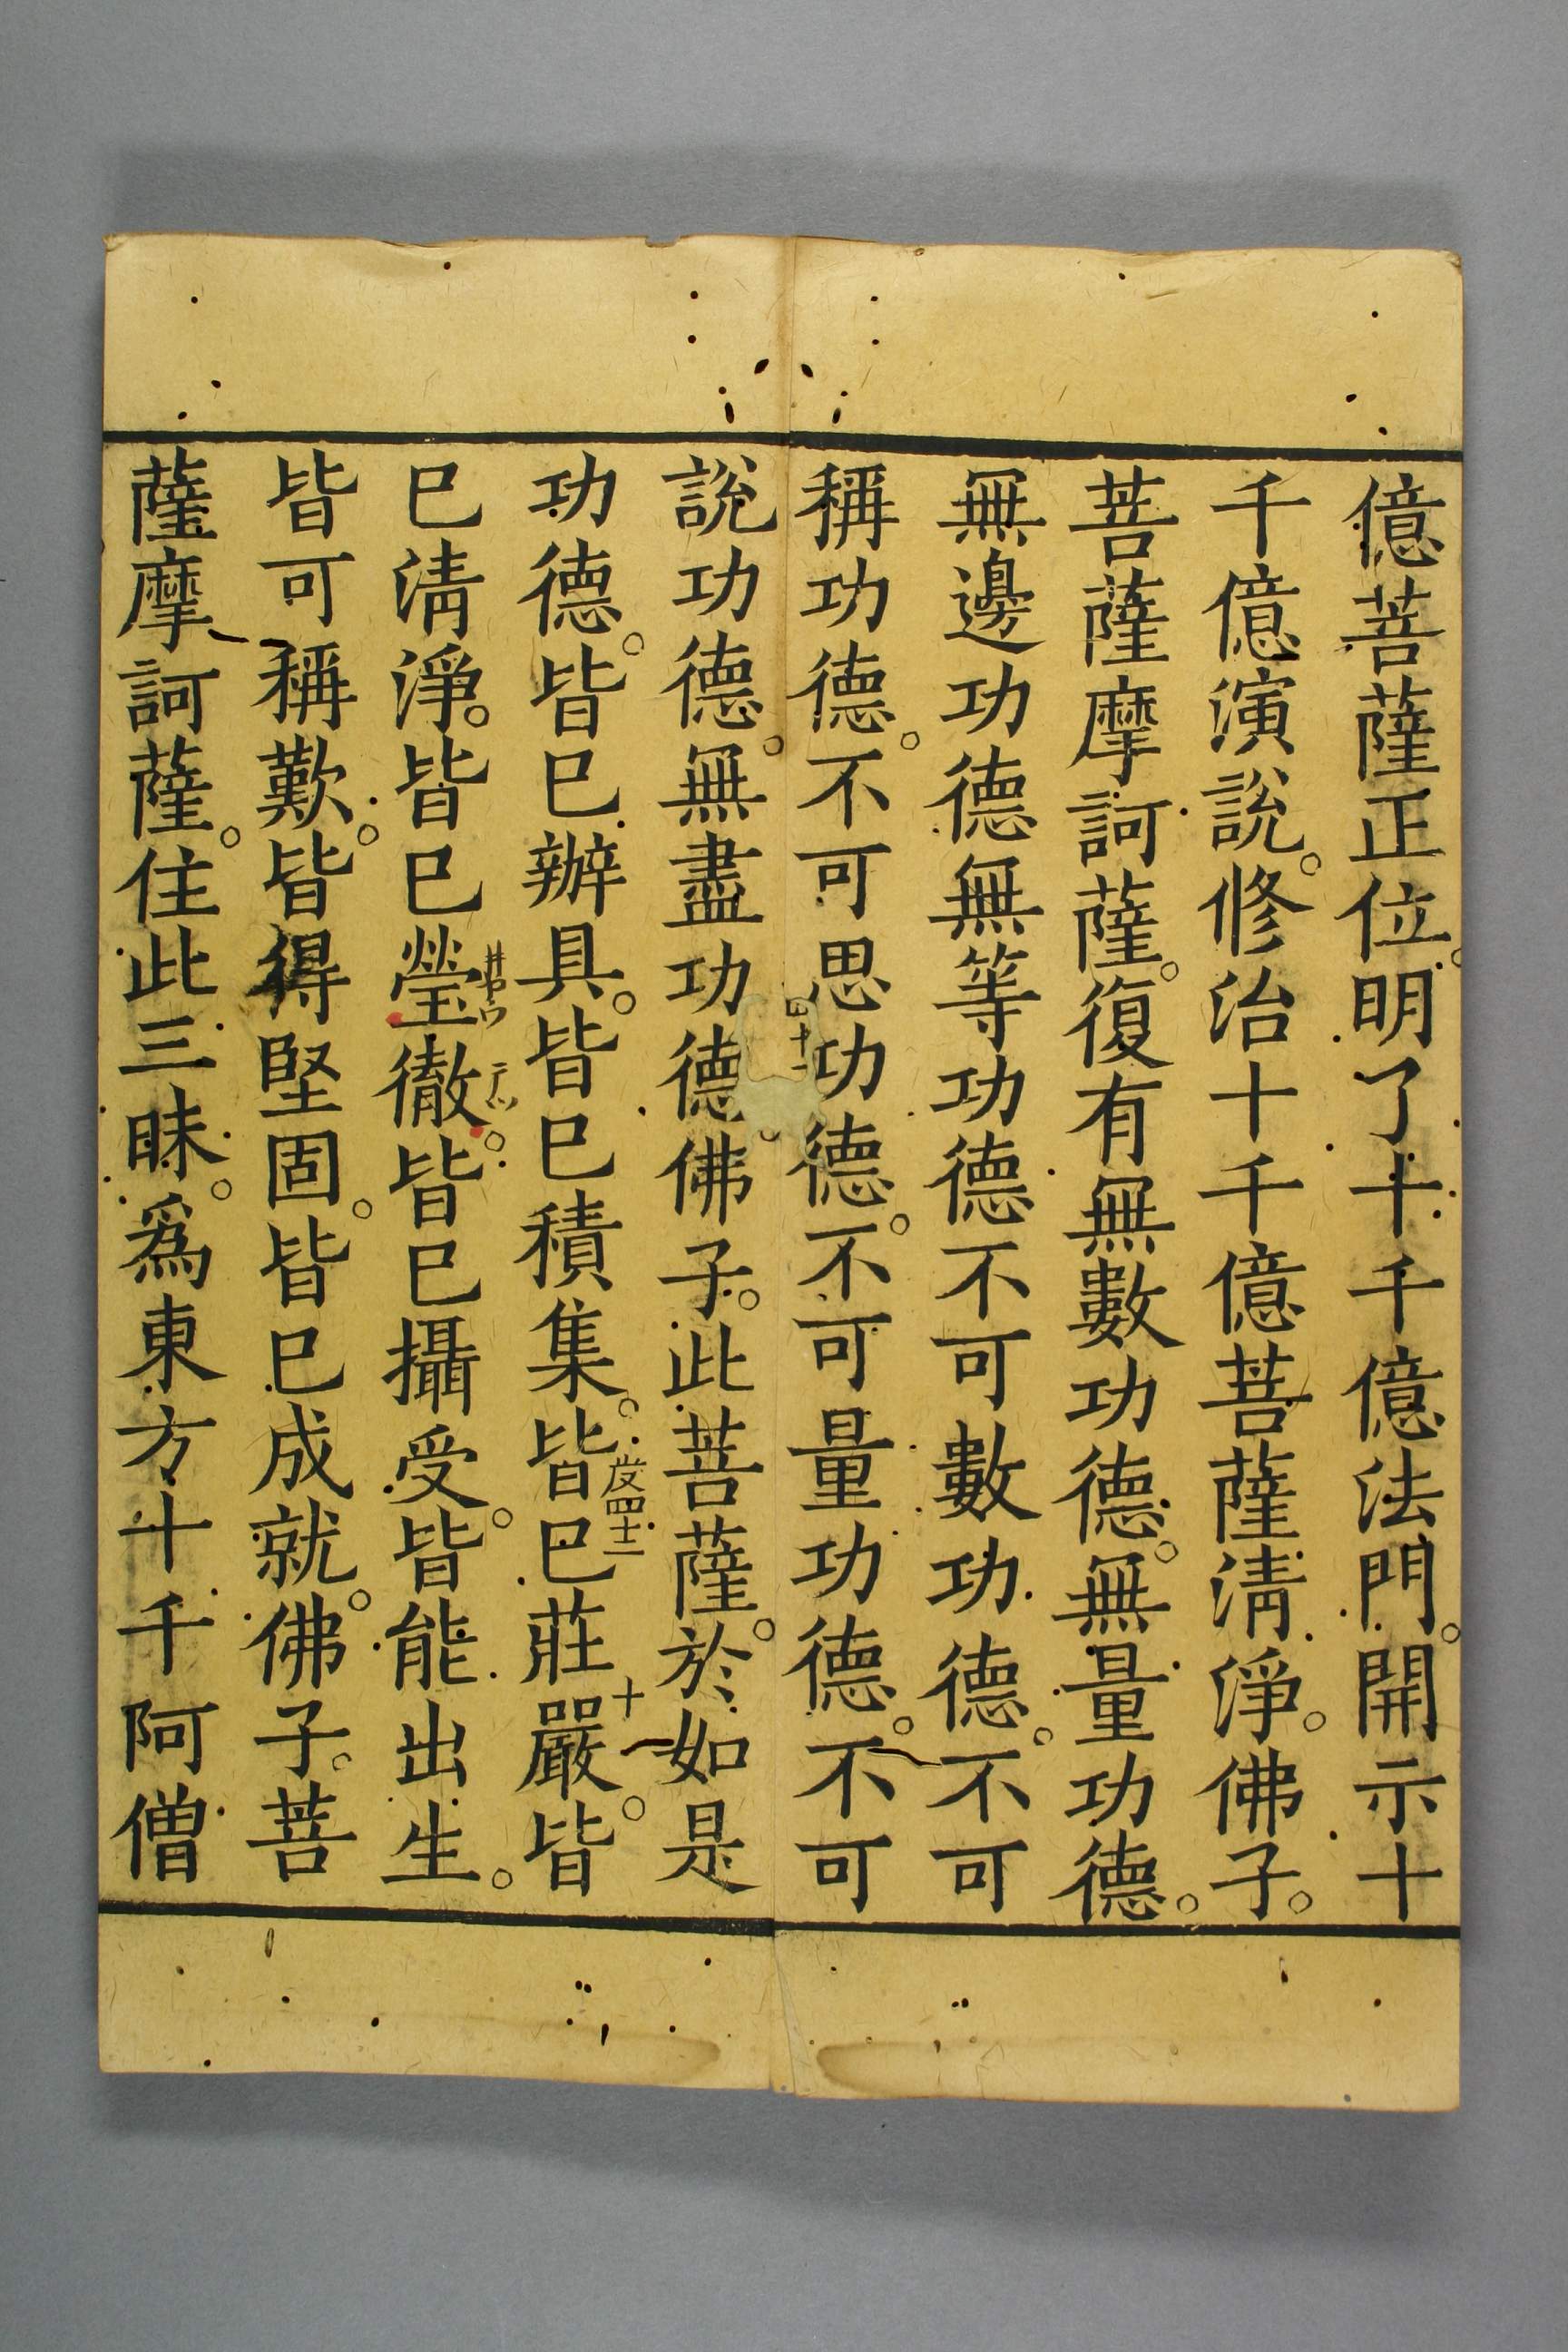 億菩薩正位。明了十千億法門。開示十
千億演說。修治十千億菩薩清淨。佛子。
菩薩摩訶薩。復有無數功德。無量功德。
無邊功德無等功德不可數功德。不可
稱功德。不可思功德。不可量功德。不可
四十一
說功德。無盡功德。佛子。此菩薩。於如是
功德。皆巳辦具。皆巳積集。皆巳莊嚴。皆
发四十二
十
巳清淨。皆巳瑩徹。皆巳攝受。皆能出生。
皆可稱歎。皆得堅固。皆巳成就。佛子。菩
薩摩訶薩。住此三昧。爲東方十千阿僧